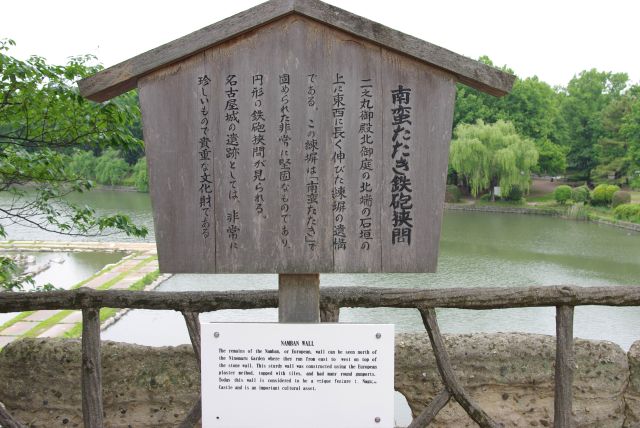 南蛮たたき鉄砲狭間
二之丸御殿北御庭の北端の石垣の
上に東西に長く伸びた練塀の遺構
である。この練塀は「南蛮たたき」で
固められた非常に堅固なものであり、
円形の鉄砲狭間が見られる。
名古屋城の遺跡としては、非常に
珍しいもので貴重な文化財である
NAMBAN WALL
The remains of the Namban, or European, wall can be seen north of
the Ninomaru Garden where they run from east to west on top of
the stone wall. This sturdy wall was constructed using the European
plaster method, topped with tiles, and had many round gunports.
Today this wall is considered to be a unique feature
Castle and is an important cultural asset.